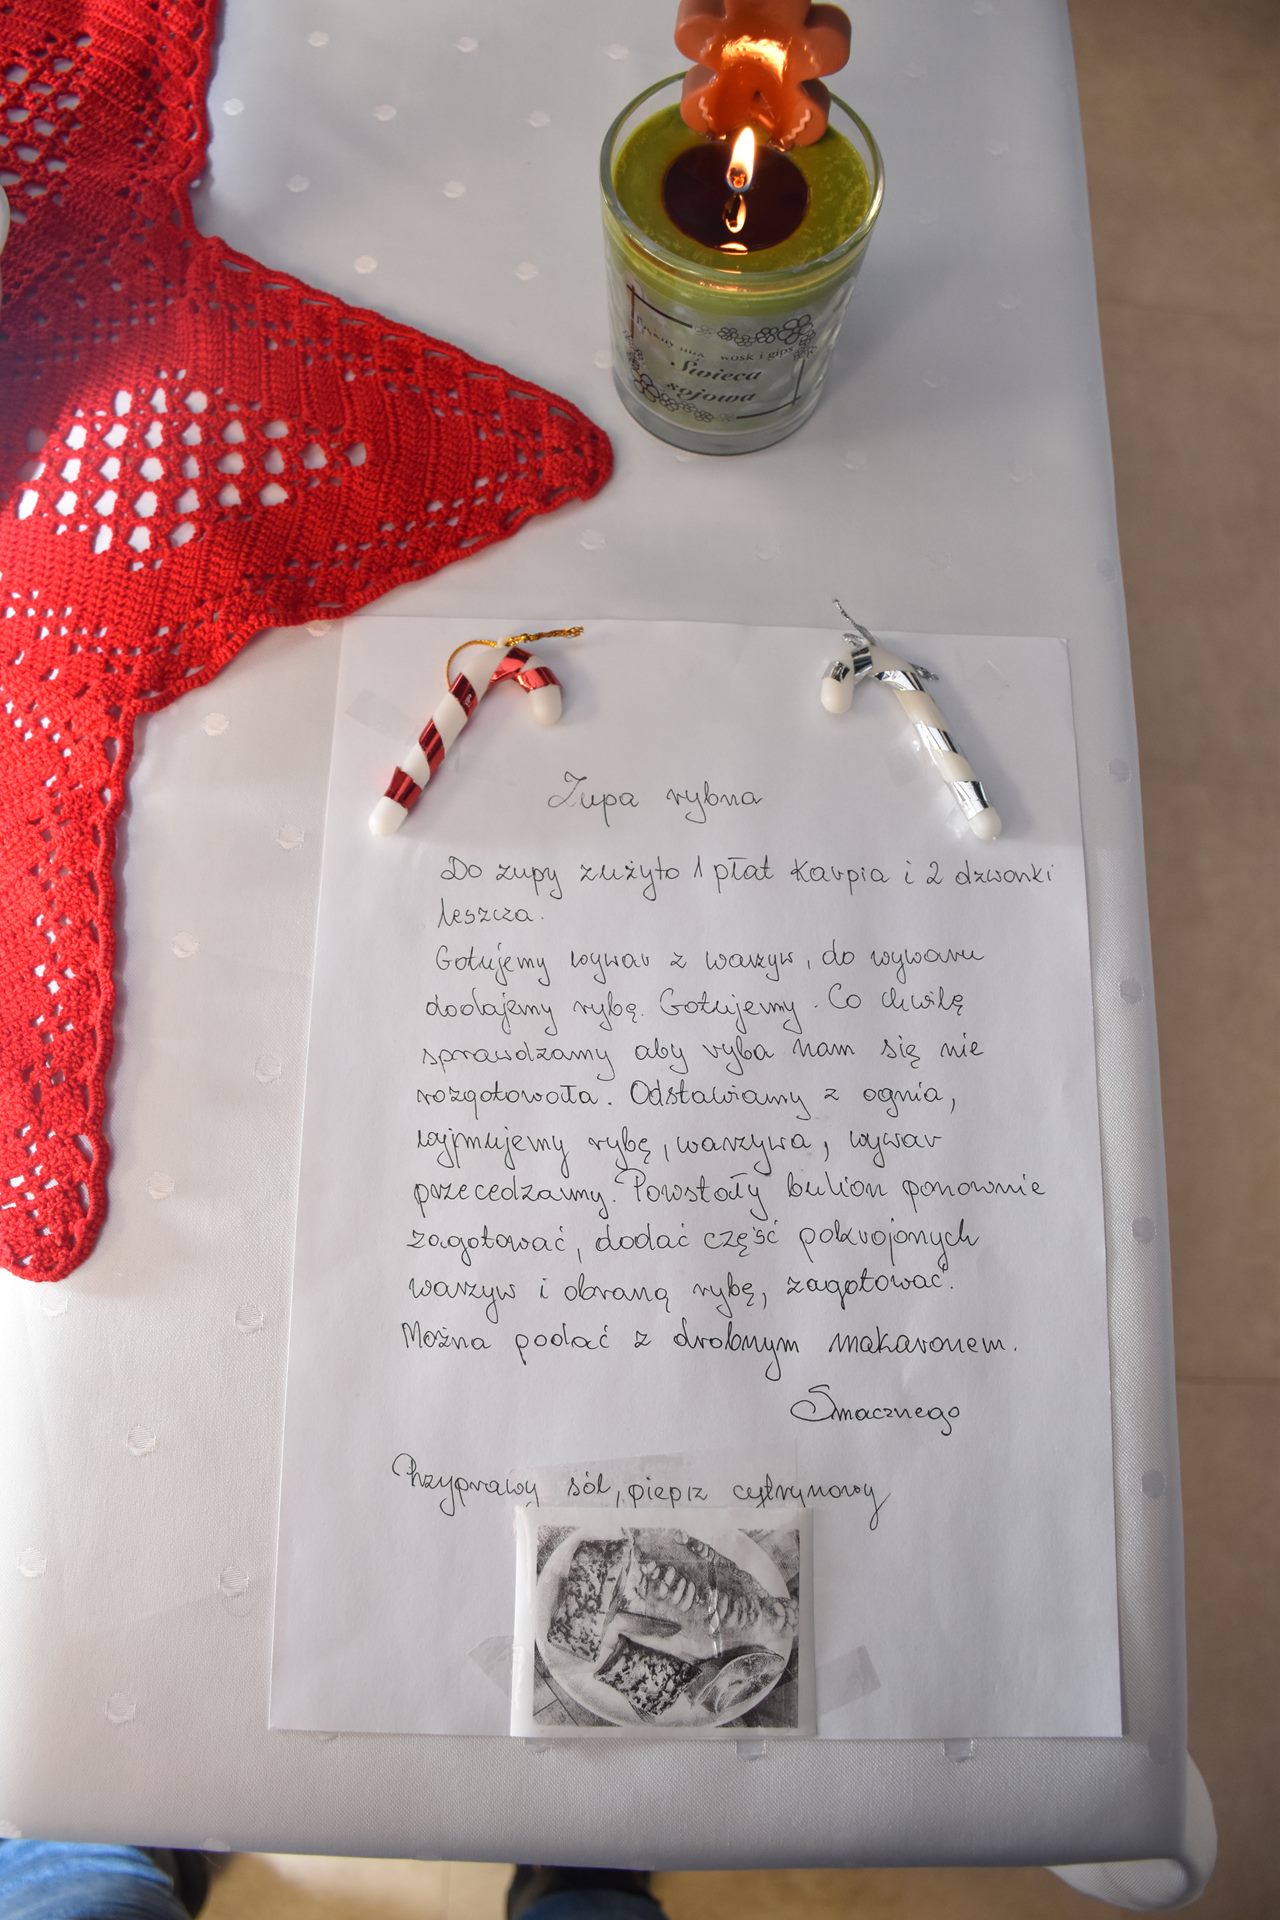 wosk i gips
Świeca
sojowa
Zupa rybna
Do zupy zużyto 1 płat karpia i 2 dzwonki
leszcza.
Gotujemy wywar z warzyw, do wywaru
dodajemy rybę. Gotujemy. Co chwilę
sprawdzamy aby ryba nam się nie
rozgotowała. Odstawiamy z ognia,
wyjmujemy rybę, warzywa, wywar
przecedzamy. Powstały bulion ponownie
zagotować, dodać część pokrojonych
warzyw i obraną rybę, zagotować.
Można podać z drobnym makaronem.
Smacznego
Przyprawy sól, pieprz cytrynowy